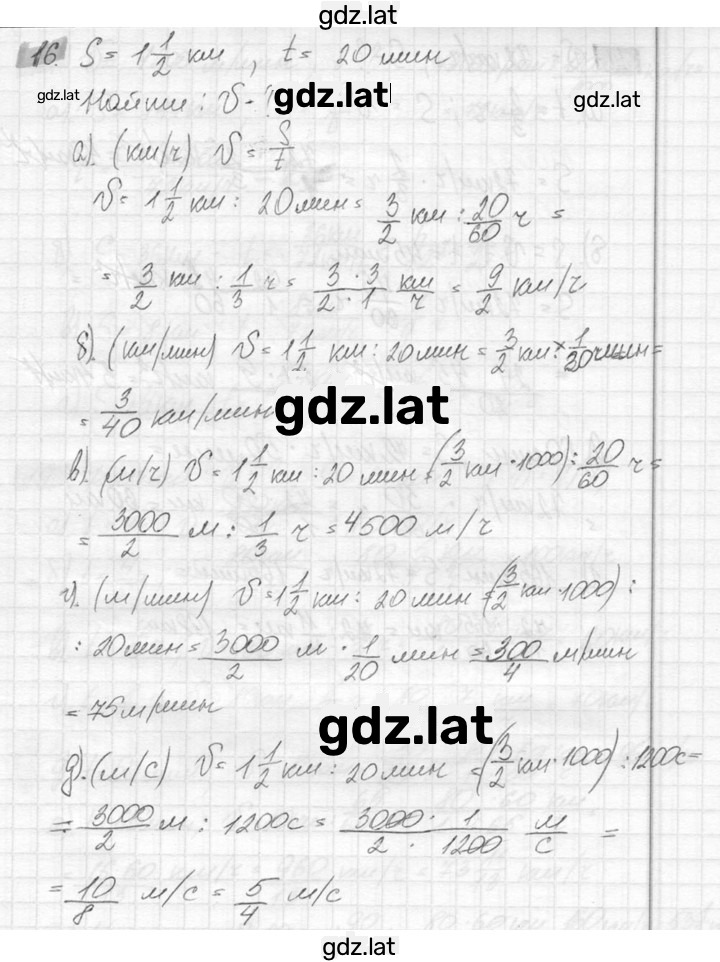 gdz.lat
16. S = 1 1/2 км, t = 20 мин
gdz.lat
Найти: v - ?
gdz.lat
а). (км/ч) v = S/t
v = 1 1/2 км : 20 мин = 3/2 км : 20/60 ч =
= 3/2 км : 1/3 ч = 3 · 3/2 · 1 км/ч = 9/2 км/ч
б). (км/мин) v = 1 1/2 км : 20 мин = 3/2 км · 1/20 мин =
= 3/40 км/мин
gdz.lat
в). (м/ч) v = 1 1/2 км : 20 мин = (3/2 км · 1000) : 20/60 ч =
= 3000/2 м : 1/3 ч = 4500 м/ч
г). (м/мин) v = 1 1/2 км : 20 мин = (3/2 км · 1000) :
: 20 мин = 3000/2 м · 1/20 мин = 300/4 м/мин
= 75 м/мин
gdz.lat
д). (м/с) v = 1 1/2 км : 20 мин = (3/2 км · 1000) : 1200с =
= 3000/2 м : 1200с = 3000 · 1/2 · 1200 м/с =
= 10/8 м/с = 5/4 м/с
gdz.lat